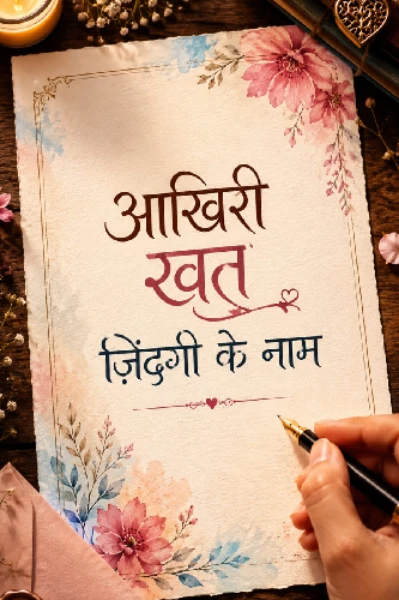 आखिरी
खत
ज़िंदगी के नाम